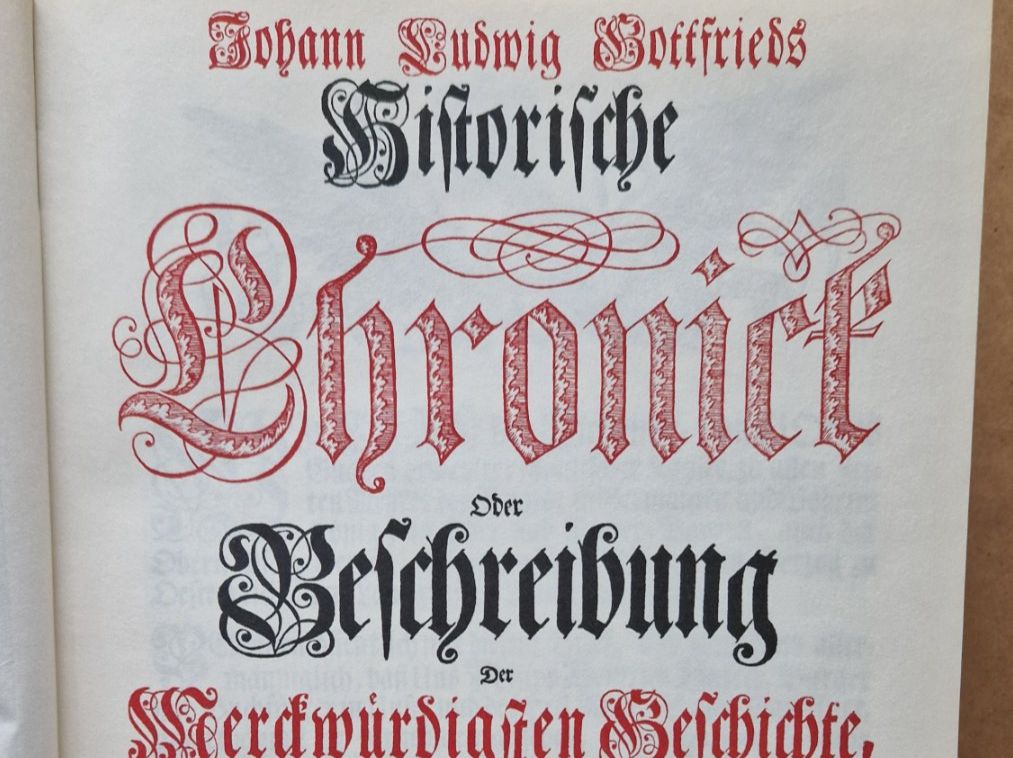 Johann Ludwig Gottfrieds
Historische
Chronick
Oder
Beschreibung
Der
Merckwürdigsten Geschichte,